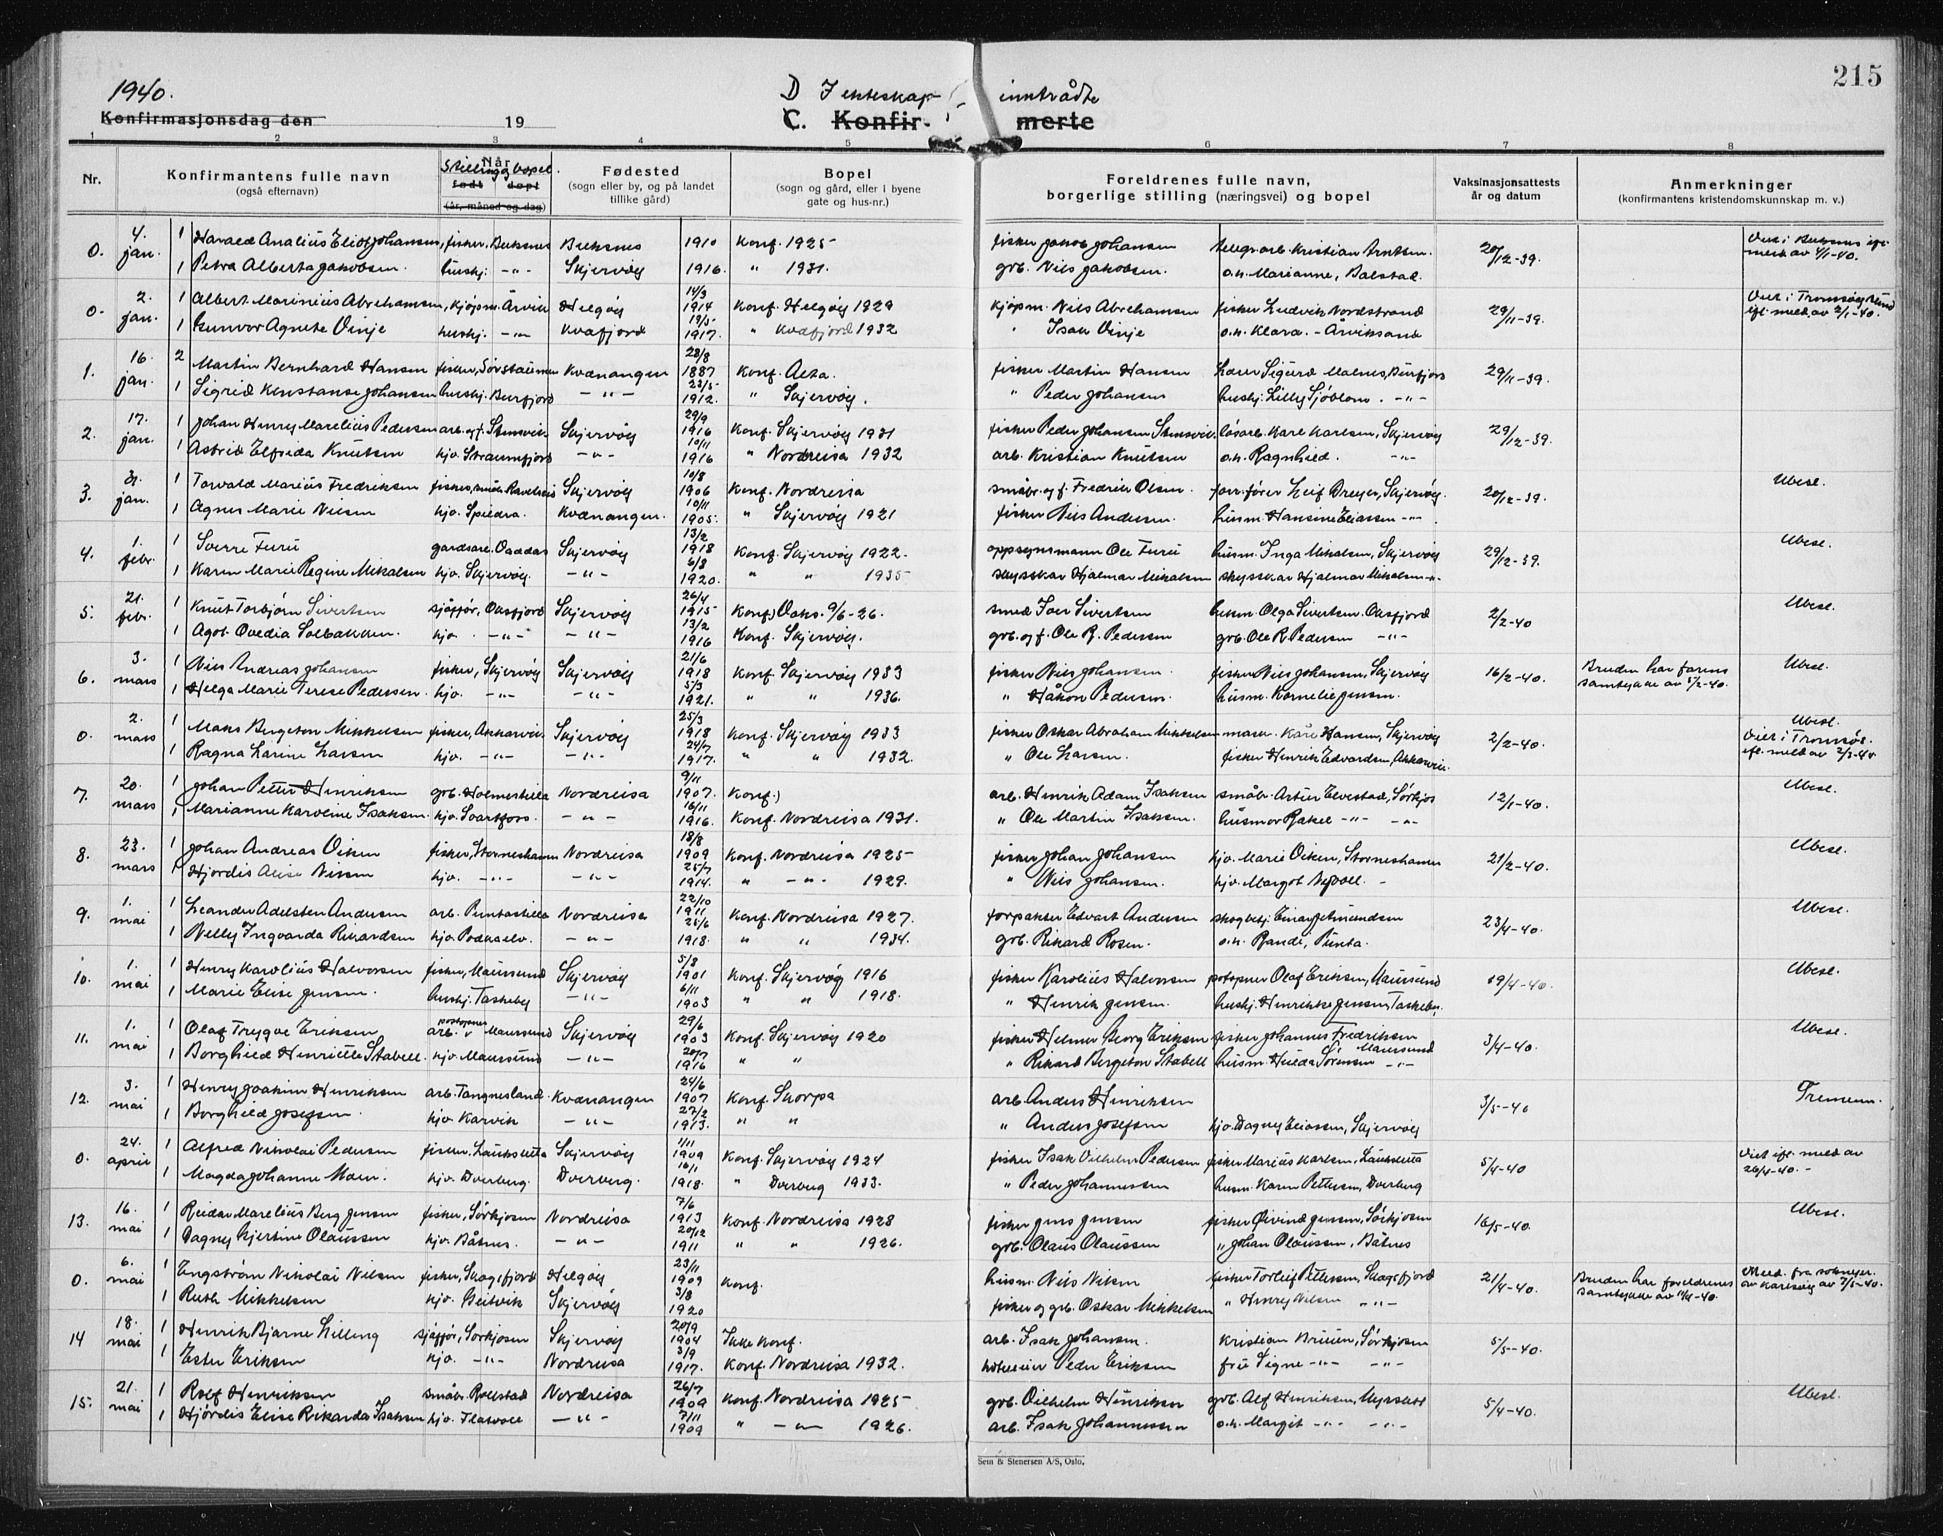 215
1940.
D I ekteskap inntrådte
Konfirmasjonsdag den 19
C. Konfir- merte
1 2 3 4 5 6 7 8
Nr.
Konfirmantens fulle navn
(også efternavn)
Når
Stilling og bopel.
født døpt
(år, måned og dag)
Fødested
(sogn eller by, og på landet
tillike gård)
Bopel
(sogn og gård, eller i byene
gate og hus-nr.)
Foreldrenes fulle navn,
borgerlige stilling (næringsvei) og bopel
Vaksinasjonsattests
år og datum
Anmerkninger
(konfirmantens kristendomskunnskap m. v.)
0. 4. jan. 1 Harald Analius Eliot Johansen, fisker, Buksnes Buksnes 1910 Konf. 1925 fisker Jakob Johansen telegr.arb. Kristian Arntsen. 20/12-39. Viet i Buksnes ifl. meld av 4/1-40.
1 Petra Alberta Jakobsen. hushj. -"- Skjervøy 1916. " 1931. grb. Nils Jakobsen. o.h. Marianne, Balstad.
0. 2. jan. 1 Albert Marinius Abrahamsen, kjøpm. Årvik Helgøy 14/3 1914 Konf. Helgøy 1929 kjøpm. Nils Abrahamsen fisker Ludvik Nordstrand 29/11-39. ifl. meld av 2/1-40.
1 Gunvor Agnete Vinje hushj. -"- Kvæfjord 19/5 1917. " Kvæfjord 1932 " Isak Vinje o.h. Klara. - Årviksand
1. 16. jan. 2 Martin Bernhard Hansen fisker, Sørstraumen Kvænangen 28/8 1887 Konf. Alta. fisker Martin Hansen lærer Sigurd Malnes, Burfjord 29/11-39.
1 Sigrid Konstanse Johansen hushj. Burfjord -"- 22/5 1912. " Skjervøy. " Peder Johansen hushj. Lilly Sjøblom. -"-
2. 17. jan. 1 Johan Henry Marelius Pedersen arb. og f. Stensvik Skjervøy 29/9 1916 Konf. Skjervøy 1931 fisker Peder Johansen Stensvik. løsarb. Karl Karlsen, Skjervøy 29/12-39.
1 Astrid Elfrida Knutsen hjv. Straumfjord -"- 10/11 1916 " Nordreisa 1932 arb. Kristian Knutsen o.h. Ragnhild. -"-
3. 31. jan. 1 Torvald Marius Fredriksen fisker, småbr. Skjervøy 10/8 1906 Konf. Nordreisa småbr. og f. Fredrik Olsen. forr.fører Leif Dreyer, Skjervøy. 20/12-39. Ubesl.
1 Agnes Marie Nilsen hjv. Spildra. Kvænangen. 10/11 1905. " Skjervøy 1921 fisker Nils Andersen. husm. Hansine Eliassen -"-.
4. 1. febr. 1 Sverre Furu gardsarb. Skjervøy 13/2 1918 Konf. Skjervøy 1922. oppsynsmann Ole Furu husm. Inga Mikalsen, Skjervøy 29/12-39. Ubesl.
1 Karen Marie Regine Mikalsen hjv. Skjervøy. -"- 6/8 1920. " " 1935 skysskar Hjalmar Mikalsen skysskar Hjalmar Mikalsen -"-
5. 21. febr. 1 Knut Torbjørn Sivertsen sjåfør, Oksfjord Skjervøy 26/4 1915 Konf. 9/6-26. smed Iver Sivertsen husm. Olga Sivertsen. Oksfjord 2/2-40 Ubesl.
1 Agot Ovedia Solbakken. hjv. -"- -"- 13/2 1916 Konf. Skjervøy. grb. og f. Ole R. Pedersen grb. Ole R. Pedersen -"-
6. 3. mars 1 Nils Andreas Johansen fisker, Skjervøy Skjervøy 21/6 1918 Konf. Skjervøy 1933 fisker Nils Johansen. fisker Nils Johansen, Skjervøy 16/2-40. Bruden har farens samtykke av 5/2-40. Ubesl.
1 Helga Marie Terese Pedersen. hjv. -"- -"- 5/3 1921. " " 1936. " Håkon Pedersen. husm. Kornelie Jensen.
0. 2. mars 1 Maks Bergeton Mikkelsen fisker, Akkarvik. Skjervøy 25/3 1918 Konf. Skjervøy 1933 fisker Oskar Abraham Mikkelsen mask. Kåre Hansen, Skjervøy 2/2-40. Ubesl. Viet i Tromsø. ifl. meld av 2/3-40
1 Ragna Larine Larsen hjv. -"- -"- 24/7 1917. " " 1932. " Ole Larsen. fisker Henrik Edvardsen Akkarvik.
7. 20. mars 1 Johan Petter Henriksen grb. Nordreisa 9/11 1907. Konf.) arb. Henrik Adam Isaksen småbr. Artur Elvestad, Sørkjos 12/1-40. Ubesl.
1 Marianne Karoline Isaksen. hjv. Svartfoss. -"- 16/11 1916. Konf. Nordreisa 1931. " Ole Martin Isaksen. husmor Rakel -"- -"-
8. 23. mars 1 Johan Andreas Oiken fisker, Storneshamn Nordreisa 18/8 1909 Konf. Nordreisa 1925 fisker Johan Johansen hjv. Marie Oiken, Storneshamn 21/2-40. Ubesl.
1 Hjørdis Alise Nilsen hjv. -"- -"- 25/7 1914. " -"- 1929. " Nils Johansen. hjv. Margot -
9. 1. mai 1 Leander Adelsten Andersen arb. Puntastilla Nordreisa 22/10 1911 Konf. Nordreisa 1927. forpakter Edvart Andersen skogbetj. Einar Jetmundsen 23/4-40. Ubesl.
1 Nelly Ingvarda Rikardsen hjv. Podkaelv. -"- 25/6 1918. " " 1934. grb. Rikard Rosen. o.h. Randi, Punta.
10. 1. mai 1 Henry Karolius Halvorsen fisker, Maursund Skjervøy 5/8 1901 Konf. Skjervøy 1916 fisker Karolius Halvorsen postopner Olaf Eriksen, Maursund 19/4-40. Ubesl.
1 Marie Elise Jensen. hushj. Taskeby -"- 6/11 1903 " " 1918. " Henrik Jensen. hushj. Henrikke Jensen, Taskeby.
11. 1. mai 1 Olaf Trygve Eriksen arb. postopner Maursund Skjervøy 29/6 1903 Konf. Skjervøy 1920 fisker Helmer Georg Eriksen fisker Johannes Fredriksen Maursund 3/4-40. Ubesl.
1 Borghild Henriette Stabell. hjv. Maursund -"- 20/7 1916 " " " Rikard Bergeton Stabell husm. Hulda Sørensen -"-
12. 3. mai 1 Henry Joakim Henriksen arb. Tangnesland. Kvænangen 24/6 1907 Konf. Skorpa arb. Anders Henriksen 3/5-40 Tremenn.
1 Borghild Josefsen. hjv. Karvik -"- 27/2 1913. " " " Anders Josefsen hjv. Dagny Eliassen, Skjervøy
0. 24. april 1 Alfred Nikolai Pedersen fisker, Lauksletta Skjervøy 1/11 1909 Konf. Skjervøy 1924 fisker Isak Vilhelm Pedersen fisker Marius Karlsen, Lauksletta 5/4-40 Viet ifl. meld av 26/4-40. -
1 Magda Johanne Moen. hjv. Dverberg. Dverberg. 16/1 1918. " Dverberg 1933. " Peder Johannessen husm. Karen Pettersen, Dverberg
13. 16. mai 1 Reidar Marelius Berg Jensen fisker, Sørkjosen Nordreisa 7/6 1913 Konf. Nordreisa 1928 fisker Jens Jensen fisker Øivind Jensen, Sørkjosen 16/5-40. Ubesl.
1 Dagny Kjertine Olaussen hjv. Båtnes. -"- 20/12 1911 " " 1926. grb. Olaus Olaussen " Johan Olaussen, Båtnes
0. 6. mai 1 Engstrøm Nikolai Nilsen fisker, Skogsfjord Helgøy 23/11 1909 Konf. husm. Nils Nilsen fisker Torleif Pettersen, Skogsfjord 21/4-40 Bruden har foreldrenes samtykke av 11/4-40. Meld. fra sokneprest av Karlsøy av 7/5-40.
1 Ruth Mikkelsen hjv. Geitvik Skjervøy 3/8 1920 fisker og grb. Oskar Mikkelsen " Henry Nilsen " "-
14 18. mai 1 Henrik Bjarne Lilleng sjåfør, Sørkjosen Skjervøy 20/9 1904 Ikke konf. arb. Isak Johansen. Kristian Bruun, Sørkjosen 5/5-40.
1 Ester Eriksen hjv. -"- Nordreisa 3/9 1917. Konf. Nordreisa 1932. hotelleier Peder Eriksen fru Signe -"- -"-
15. 21. mai 1 Rolf Henriksen småbr. Rollstad Nordreisa 26/7 1909 Konf. Nordreisa 1925 grb. Vilhelm Henriksen grb. Alf Henriksen, Myrslett 5/4-40. Ubesl.
1 Hjørdis Elise Rikarda Isaksen hjv. Flatvoll -"- 7/11 1909 " -"- 1926. arb. Isak Johannessen o.h. Margit -"- -"-
Sem & Stenersen A/S, Oslo.